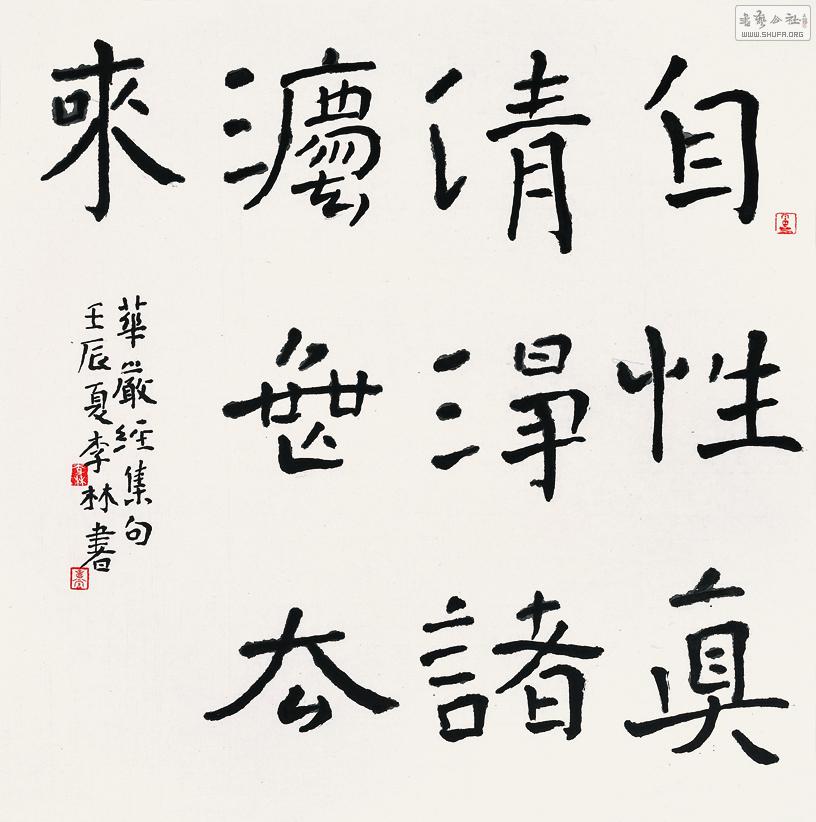 自性眞
清淨諸
灋無厺
來
華嚴經集句
壬辰夏李林書
李林
書藝公社
WWW.SHUFA.ORG